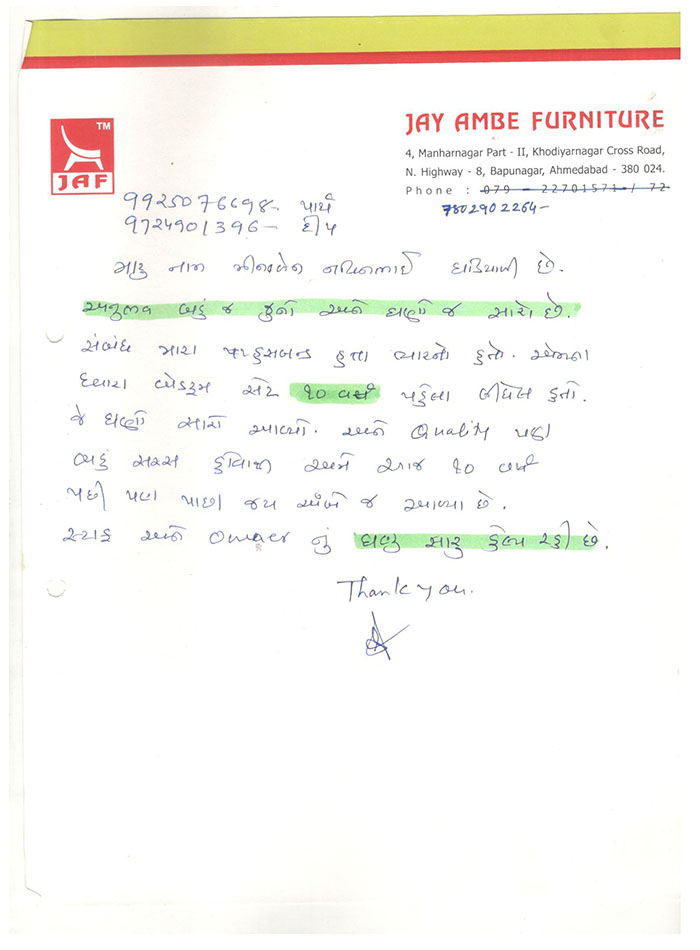 JAY AMBE FURNITURE
TM
JAF
4, Manharnagar Part - II, Khodiyarnagar Cross Road,
N. Highway - 8, Bapunagar, Ahmedabad - 380 024.
Phone : 079 - 22701571 / 72
7802902264-
9925076698- પાર્થ
9724901396- દીપ
મારુ નામ નયિનભાઈ છે.
અનુભવ બહુ જ જુનો અને ઘણો જ સારો છે.
સંબંધ મારા હતા ત્યારનો હતો.
બેડરૂમ સેટ ૧૦ વર્ષ પહેલા લીધેલ હતો.
જે ઘણો સારો આવ્યો. અને Quality પણ
બહુ સરસ હોવાથી અમે આજ ૧૦ વર્ષ
પછી પણ પાછા જય અંબે જ આવ્યા છે.
સ્ટાફ અને Owner નું ઘણુ સારુ હેલ્પ રહી છે.
Thank you.